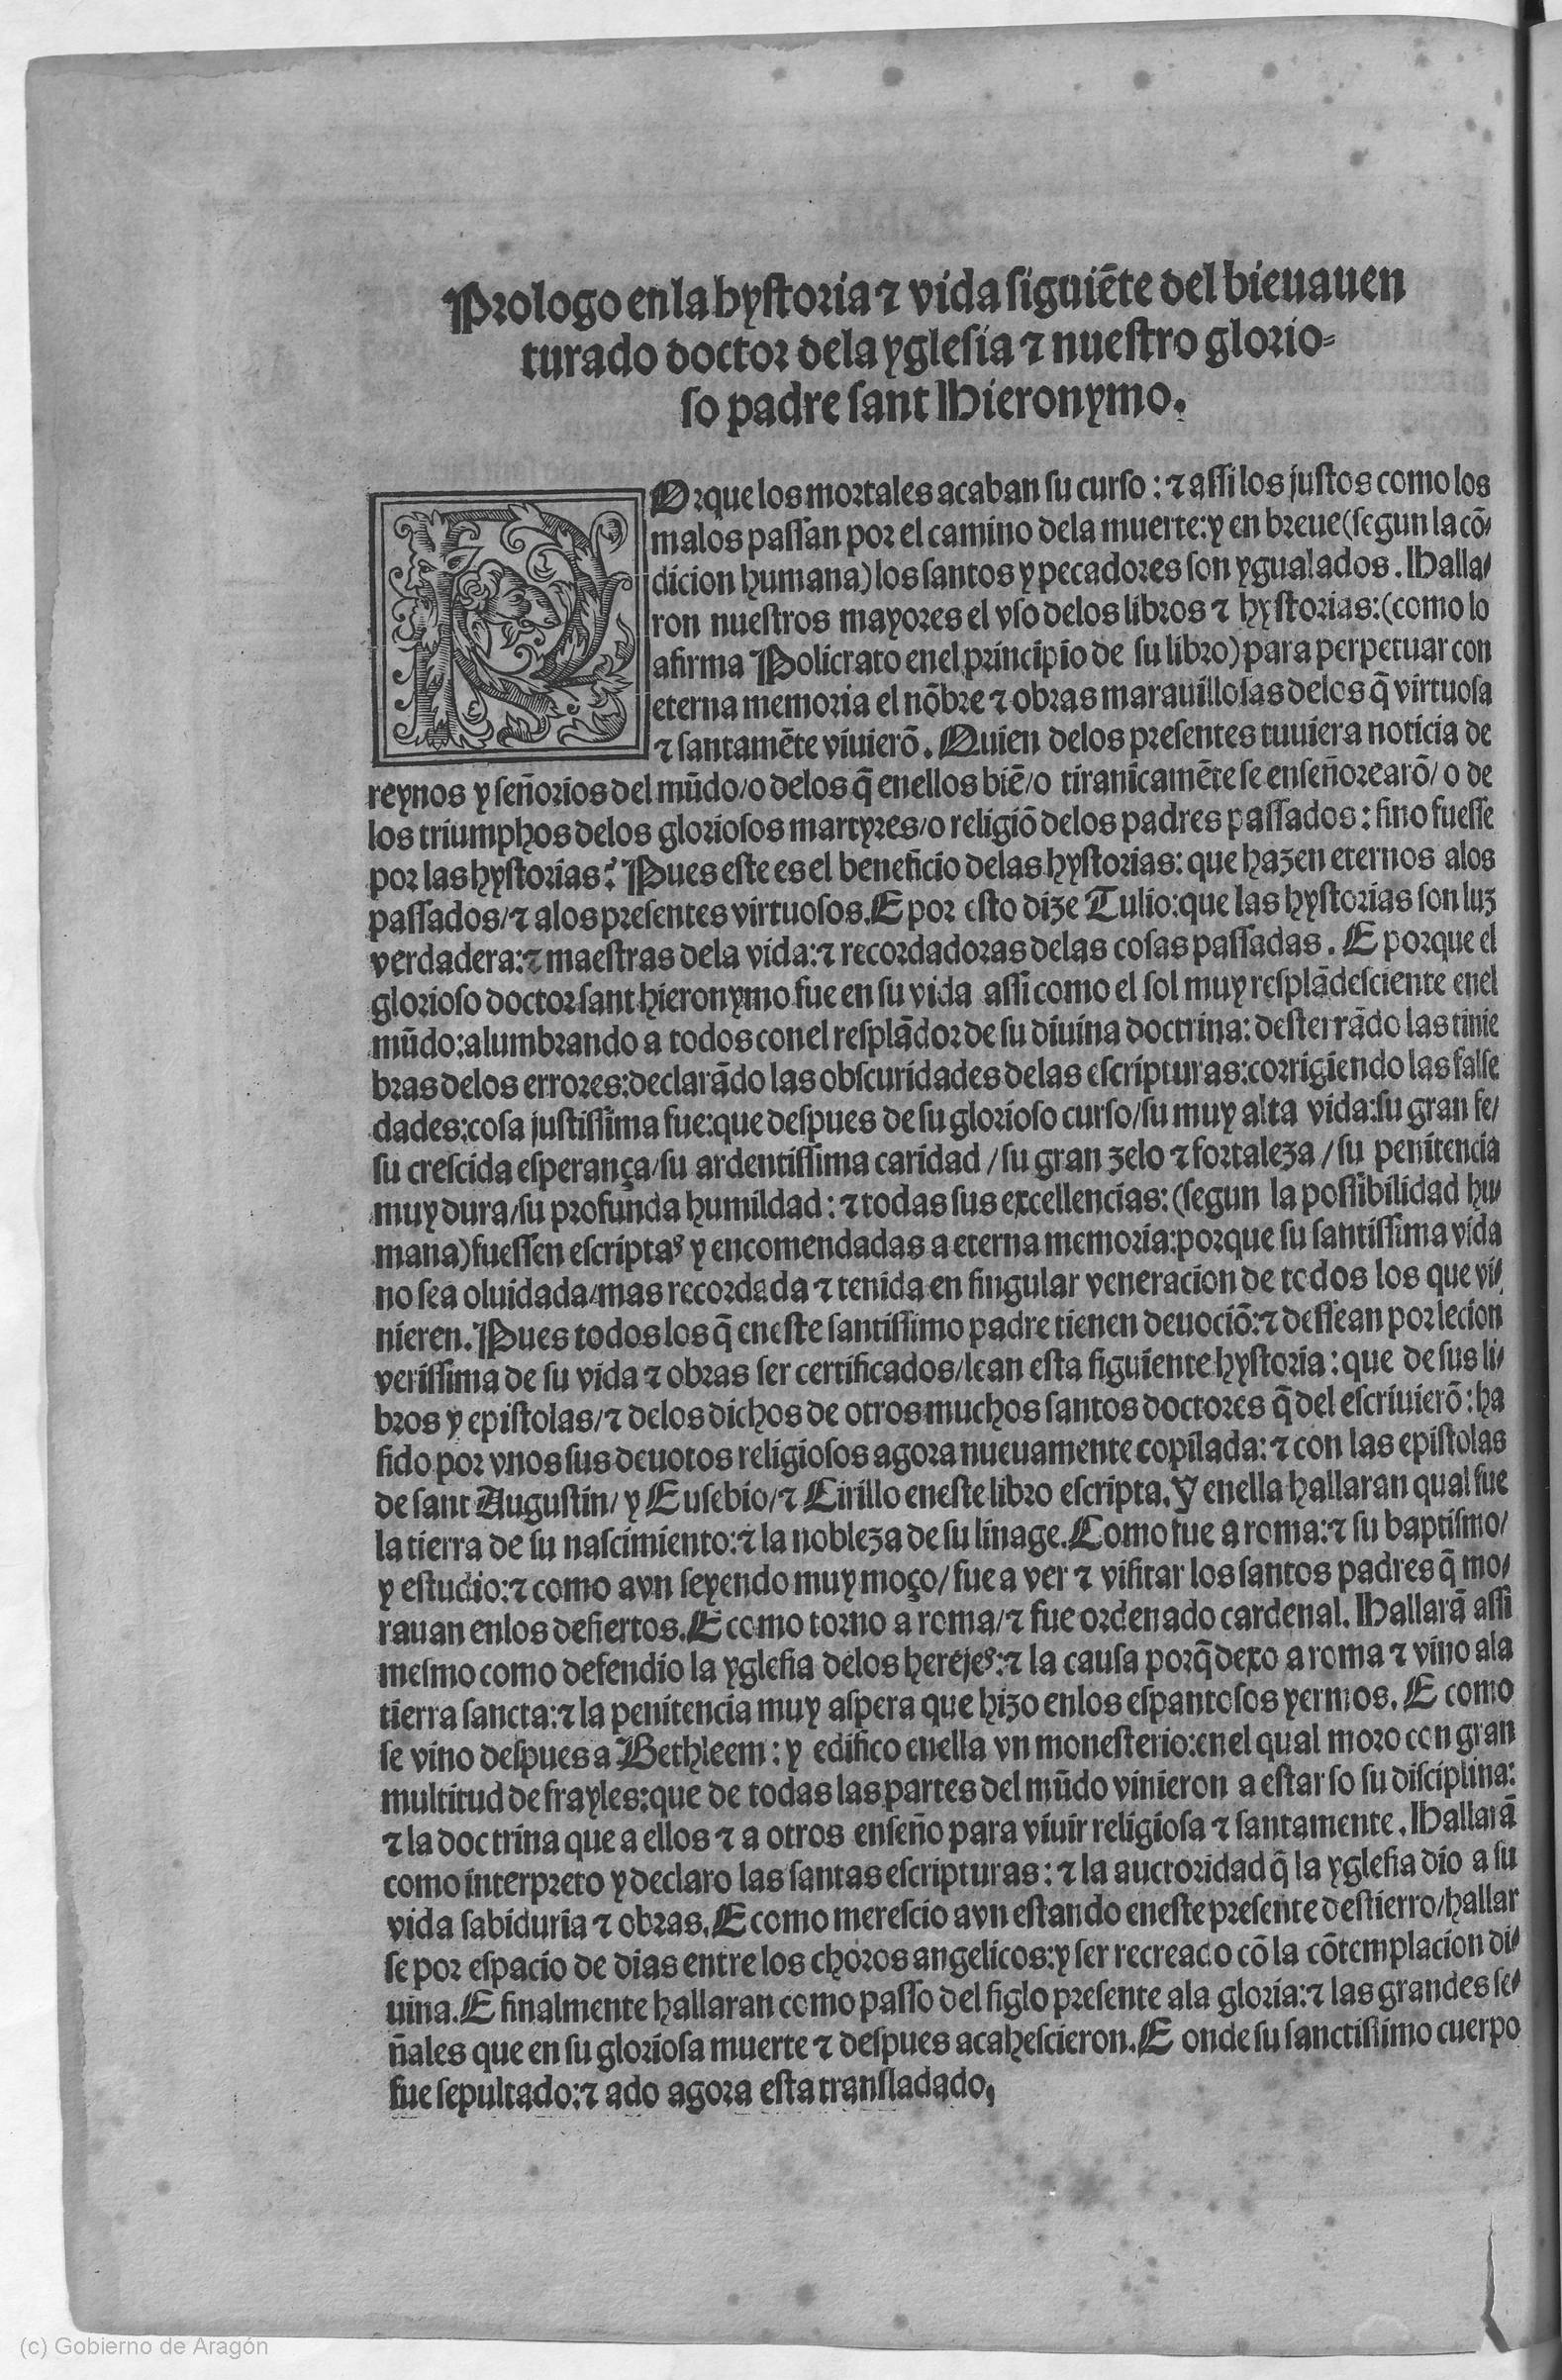 Prologo enla hystoria ⁊ vida siguiēte del bieuauen
turado doctor dela yglesia ⁊ nuestro glorio-
so padre sant Hieronymo.
POrque los mortales acaban su curso : ⁊ assi los justos como los
malos passan por el camino dela muerte: y en breue (segun la cō/
dicion humana) los santos y pecadores son ygualados. Halla/
ron nuestros mayores el vso delos libros ⁊ hystorias: (como lo
afirma Policrato enel principio de su libro) para perpetuar con
eterna memoria el nōbre ⁊ obras marauillosas delos q̄ virtuosa
⁊ santamēte viuierō. Quien delos presentes tuuiera noticia de
reynos y señorios del mūdo/ o delos q̄ enellos biē/ o tiranicamēte se enseñorearō/ o de
los triumphos delos gloriosos martyres/ o religiō delos padres passados: sino fuesse
por las hystorias? Pues este es el beneficio delas hystorias: que hazen eternos alos
passados/ ⁊ alos presentes virtuosos. E por esto dize Tulio: que las hystorias son luz
verdadera: ⁊ maestras dela vida: ⁊ recordadoras delas cosas passadas. E porque el
glorioso doctor sant hieronymo fue en su vida assi como el sol muy resplādesciente enel
mūdo: alumbrando a todos conel resplādor de su diuina doctrina: desterrādo las tinie
bras delos errores: declarādo las obscuridades delas escripturas: corrigiendo las false
dades: cosa justissima fue: que despues de su glorioso curso/ su muy alta vida: su gran fe/
su crescida esperança/ su ardentissima caridad / su gran zelo ⁊ fortaleza / su penitencia
muy dura/ su profunda humildad: ⁊ todas sus excellencias: (segun la possibilidad hu/
mana) fuessen escriptas y encomendadas a eterna memoria: porque su santissima vida
no sea oluidada/ mas recordada ⁊ tenida en singular veneracion de todos los que vi/
nieren. Pues todos los q̄ eneste santissimo padre tienen deuociō: ⁊ dessean por lecion
verissima de su vida ⁊ obras ser certificados/ lean esta siguiente hystoria: que de sus li/
bros y epistolas/ ⁊ delos dichos de otros muchos santos doctores q̄ del escriuierō: ha
sido por vnos sus deuotos religiosos agora nueuamente copilada: ⁊ con las epistolas
de sant Augustin/ y Eusebio/ ⁊ Cirillo eneste libro escripta. Y enella hallaran qual fue
la tierra de su nascimiento: ⁊ la nobleza de su linage. Como fue a roma: ⁊ su baptismo/
y estudio: ⁊ como avn seyendo muy moço/ fue a ver ⁊ visitar los santos padres q̄ mo/
rauan enlos desiertos. E como torno a roma/ ⁊ fue ordenado cardenal. Hallarā assi
mesmo como defendio la yglesia delos herejes: ⁊ la causa porq̄ dexo a roma ⁊ vino ala
tierra sancta: ⁊ la penitencia muy aspera que hizo enlos espantosos yermos. E como
se vino despues a Bethleem: y edifico enella vn monesterio: enel qual moro con gran
multitud de frayles: que de todas las partes del mūdo vinieron a estar so su disciplina:
⁊ la doctrina que a ellos ⁊ a otros enseño para viuir religiosa ⁊ santamente. Hallarā
como interpreto y declaro las santas escripturas: ⁊ la auctoridad q̄ la yglesia dio a su
vida sabiduria ⁊ obras. E como merescio avn estando eneste presente destierro/ hallar
se por espacio de dias entre los choros angelicos: y ser recreado cō la cōtemplacion di/
uina. E finalmente hallaran como passo del siglo presente ala gloria: ⁊ las grandes se/
ñales que en su gloriosa muerte ⁊ despues acahescieron. E onde su sanctissimo cuerpo
fue sepultado: ⁊ ado agora esta transladado,
(c) Gobierno de Aragón